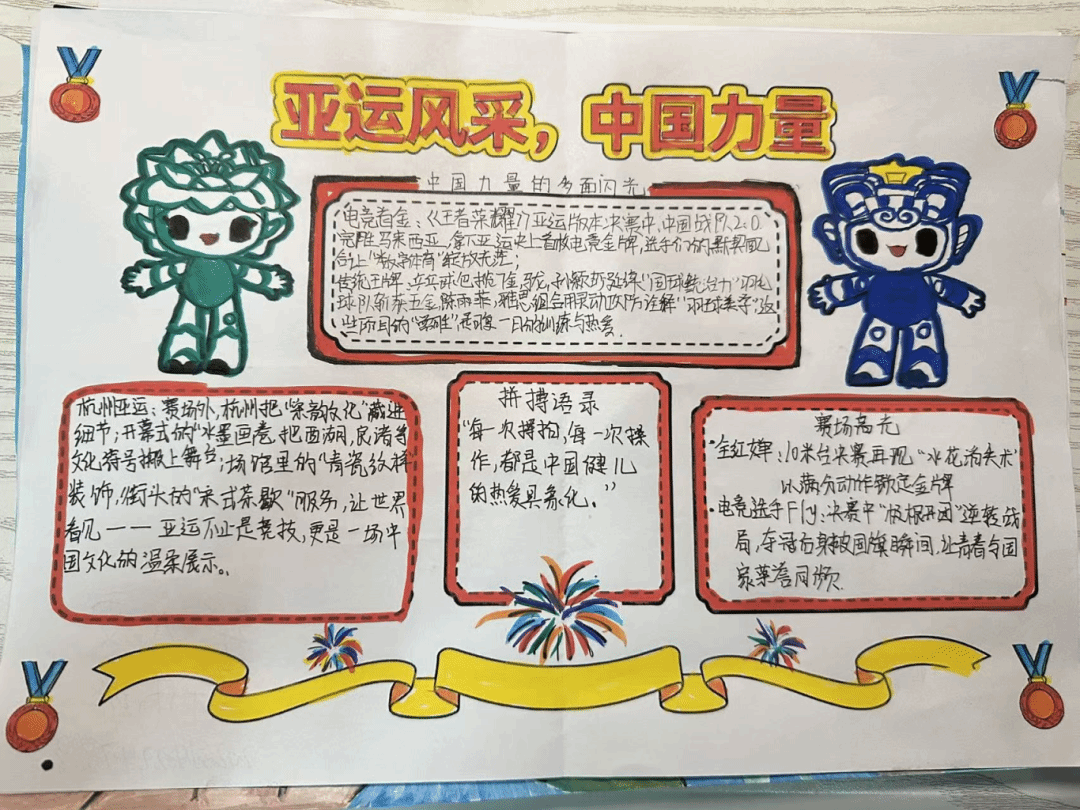 亚运风采，中国力量
中国力量的多面闪光
电竞首金：《王者荣耀》亚运版本决赛中，中国战队2:0
完胜马来西亚，拿下亚运史上首枚电竞金牌，选手们的
台上让
传统王牌：乒乓球包揽7金，孙颖莎延续"国球统治力"羽毛
球队斩获五金，陈雨菲、雅思组合用灵动攻防诠释"羽球美学"，这
些项目的 是 一日的训练与热爱。
杭州亚运：赛场外，杭州把"宋韵文化"藏进
细节；开幕式的"水墨画卷，把西湖，良渚等
文化符号搬上舞台；场馆里的"青瓷纹样"
装饰，街头的"宋式茶歇"服务，让世界
看见——亚运不止是竞技，更是一场中
国文化的温柔展示。
拼搏语录
"每一次拥抱，每一次操
作，都是中国健儿
的热爱具象化。"
赛场高光
·全红婵：10米台决赛再现"水花消失术"
以满分动作锁定金牌
·电竞选手Fly：决赛中"极限开团"逆转战
局，夺冠后身披国旗瞬间，让青春与国
家荣誉同频